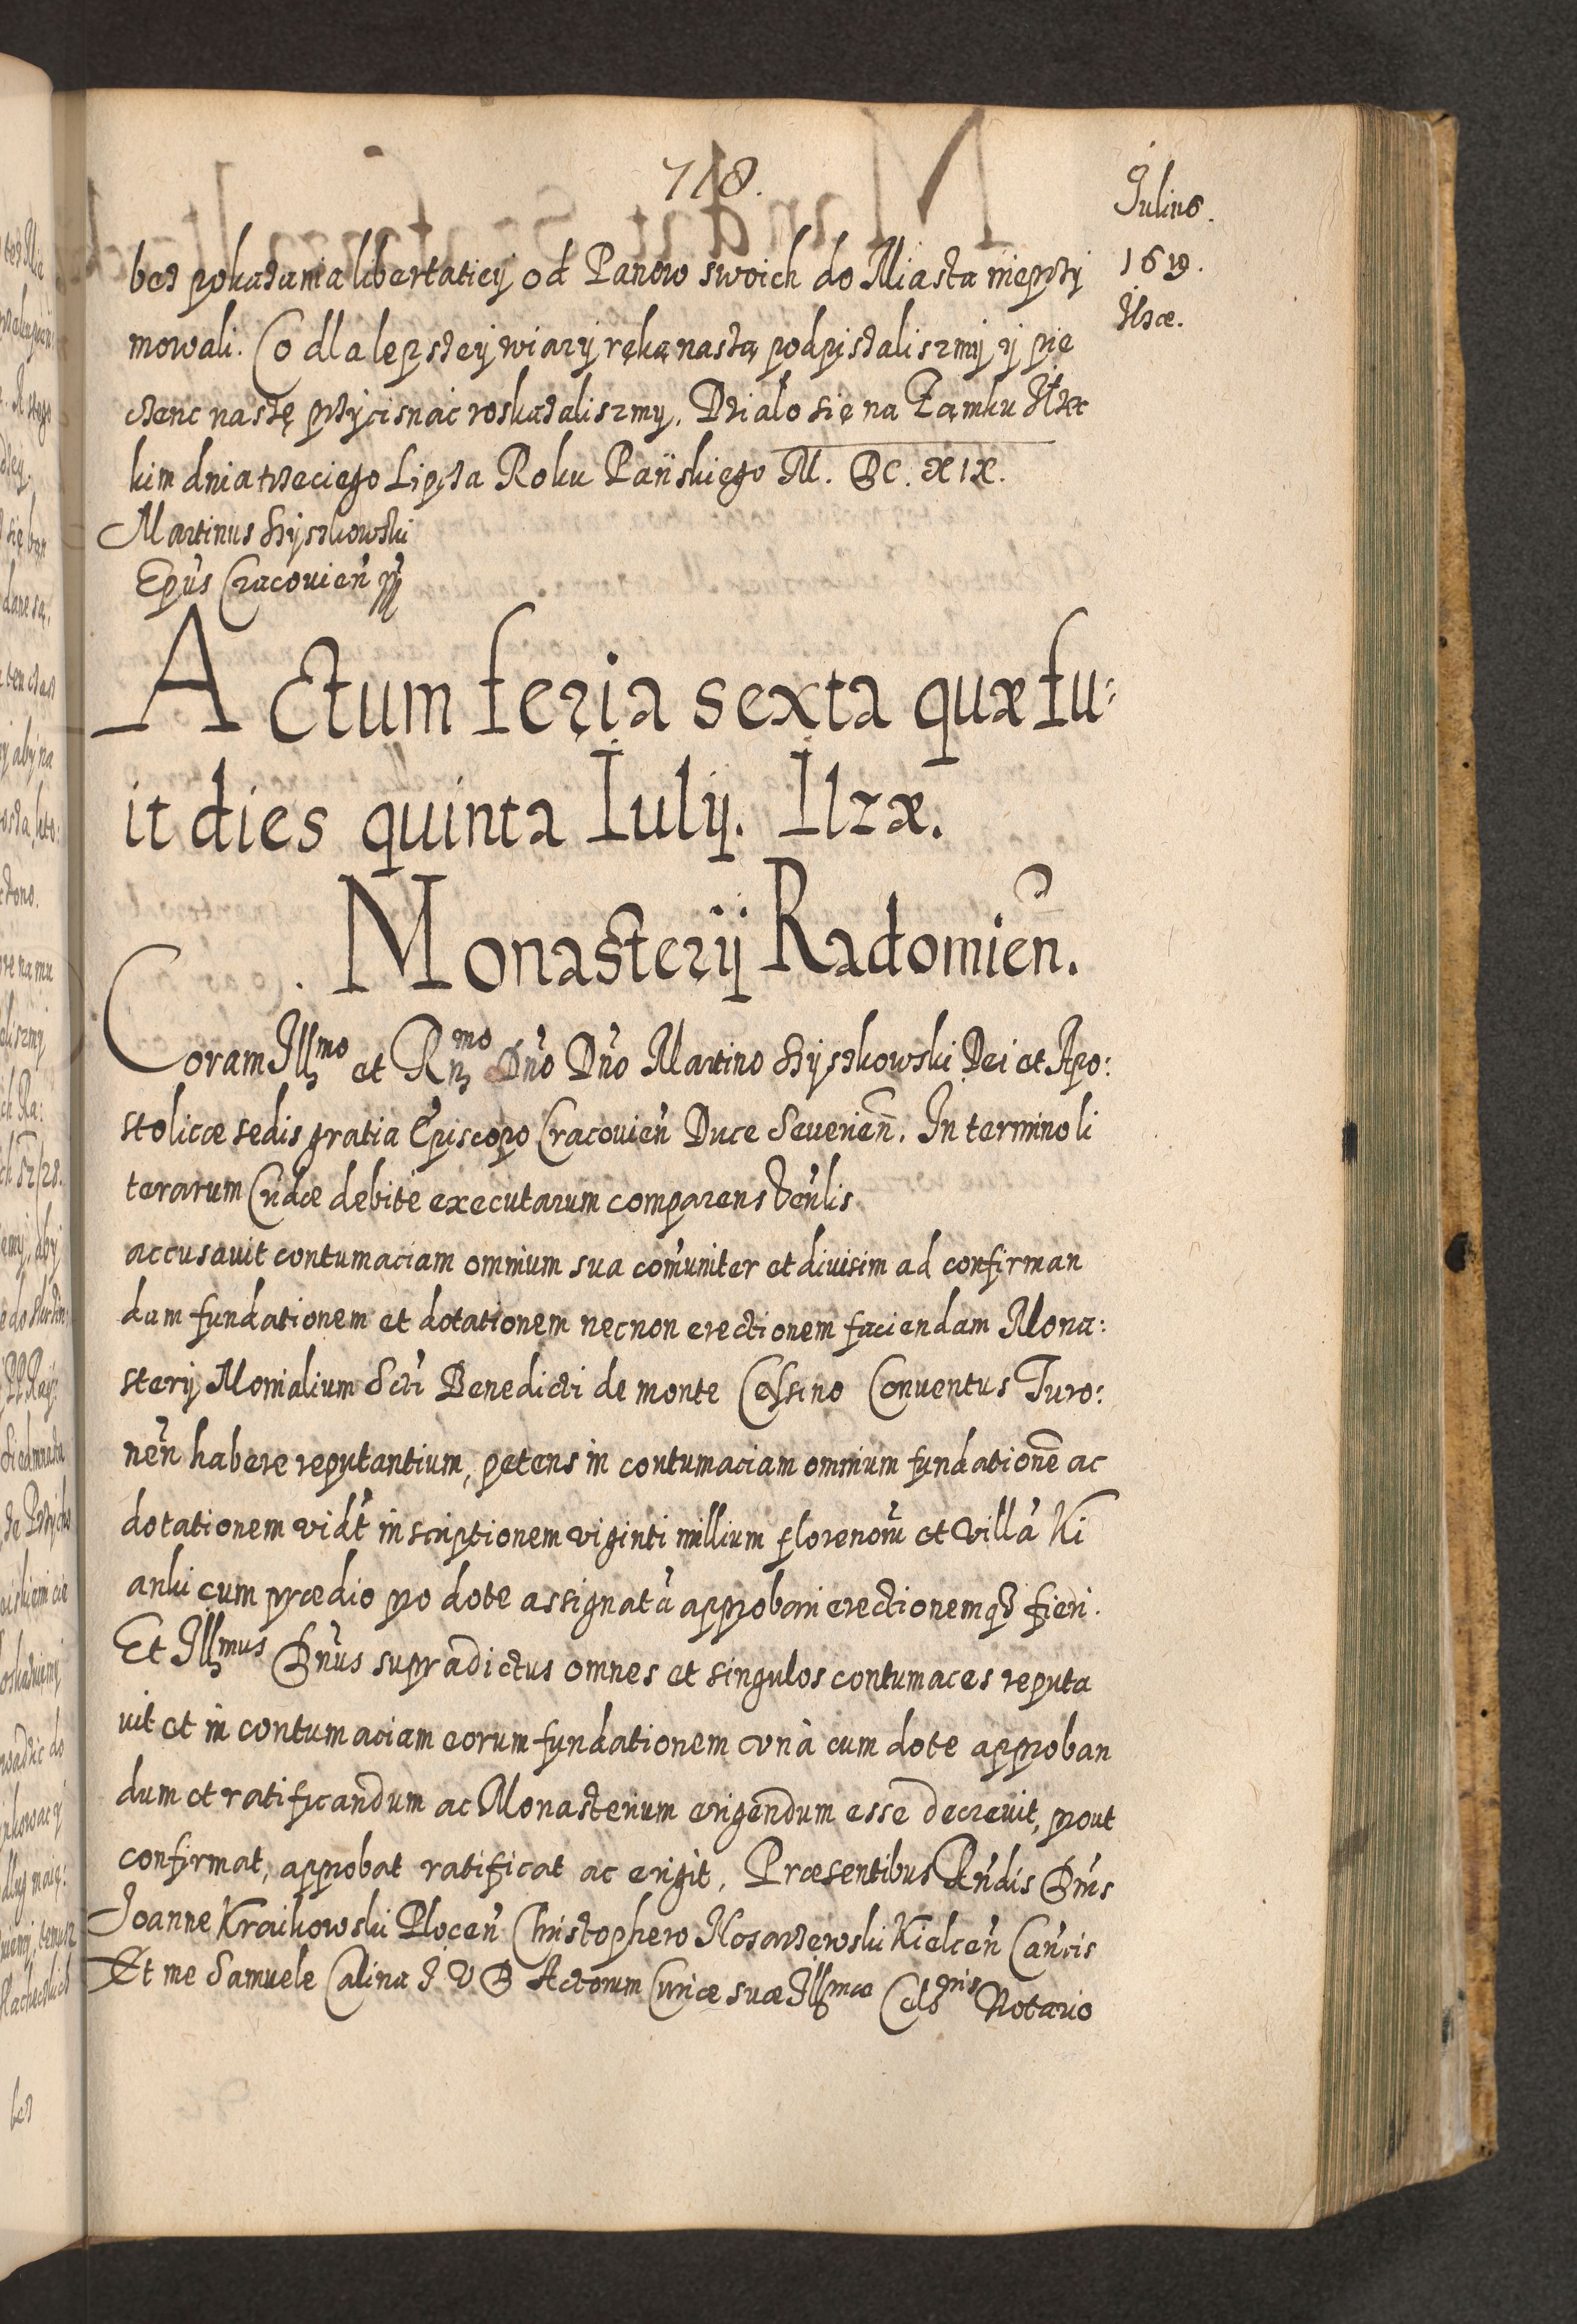 718.
Julius.
1619.
Ilzæ.
bez pokazania libertaticij od Panow swoich do Miasta nieprzy
mowali. Co dla lepszeij wiary ręką naszą podpisaliszmy ij pie
czenc naszę przycisnąc roskazaliszmy. Działo się na Zamku Iłzec
kim dnia trzeciego Lipcza Roku Pańskiego M. DC. XIX.
Martinus Szyszkowski
Epũs Cracovien̄
Actum feria sexta quæ fu:
it dies quinta Iulij. Ilzæ.
Monasterij Radomien̄.
Coram Illmo et Rmo Dño Dño Martino Szyszkowski Dei et Apo:
stolicæ sedis gratia Episcopo Cracovien̄ Duce Severien̄. In termino li
terarum Cridæ debite executarum comparens
accusavit contumaciam omnium sua com̄uniter et divisim ad confirman
dam fundationem et dotationem necnon erectionem faciendam Mona:
sterij Monialium Scti Benedicti de monte Cassino Conventus Juro:
nen̄ habere reputantium, petens in contumaciam omnium fundationē ac
dotationem vidt inscriptionem viginti millium florenorū et villā Ki
anki cum prædio pro dote assignatā approbari erectionemq3 fieri.
Et Illmus Dñus supradictus omnes et singulos contumaces reputa
vit et in contumaciam eorum fundationem vnà cum dote approban
dum et ratificandum ac Monasterium erigendum esse decrevit, prout
confirmat, approbat ratificat ac erigit, Præsentibus Rñdis Dñis
Joanne Kraikowski Plocen̄ Christophero Nosarzewski Kielcen̄ Cancis
Et me Samuele Calina J V D Actorum Curiæ suæ Illmæ Celsnis Notario